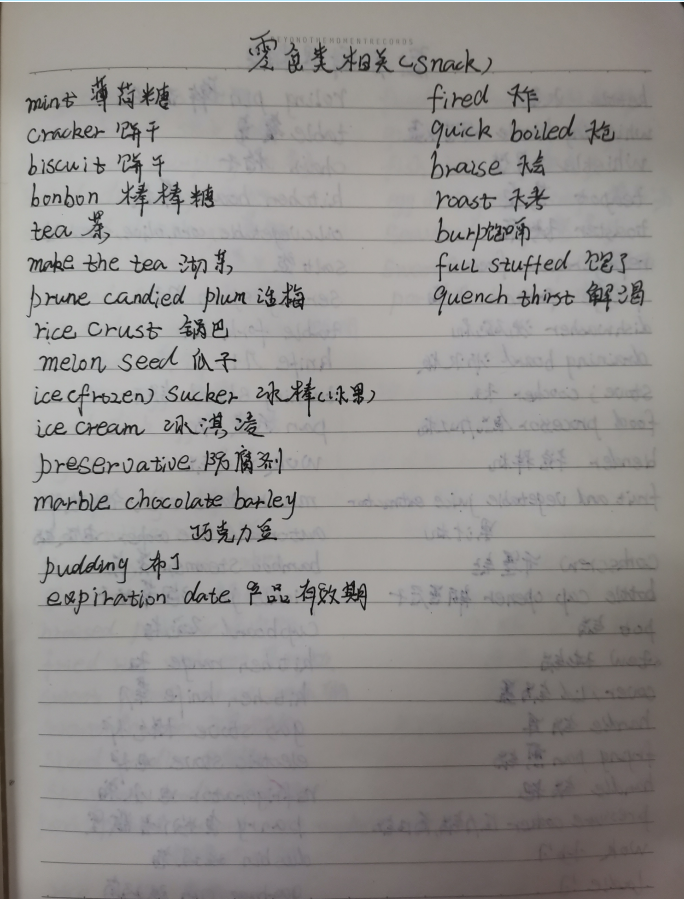 BEYONDTHEMOMENTRECORDS
零食类相关(snack)
mint 薄荷糖
cracker 饼干
biscuit 饼干
bonbon 棒棒糖
tea 茶
make the tea 沏茶
prune candied plum 话梅
rice crust 锅巴
melon seed 瓜子
ice(frozen) sucker 冰棒(冰果)
ice cream 冰淇凌
preservative 防腐剂
marble chocolate barley
巧克力豆
pudding 布丁
expiration date 产品有效期
fired 炸
quick boiled 炮
braise 烩
roast 烤
burp 饱嗝
full stuffed 饱了
quench thirst 解渴